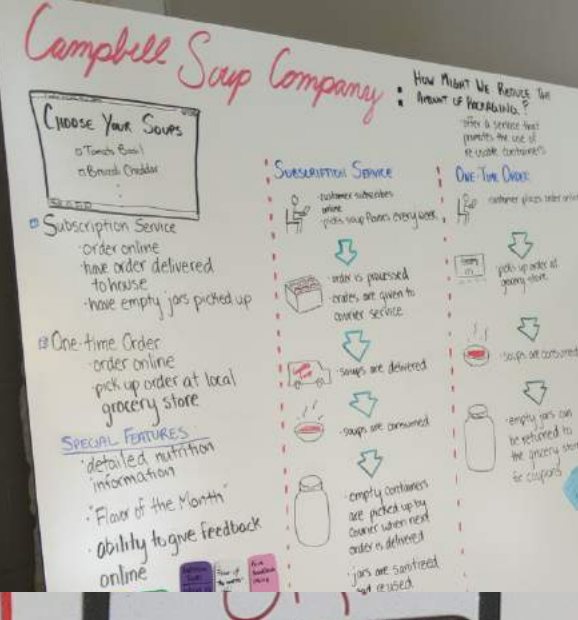 Campbell Soup Company :
HOW MIGHT WE REDUCE THE
AMOUNT OF PACKAGING?
offer a service that
promotes the use of
reusable containers
CHOOSE YOUR SOUPS
Tomato Basil
Broccoli Cheddar
Subscription Service
· order online
· have order delivered
to house
· have empty jars picked up
One-time Order
· order online
· pick up order at local
grocery store
SPECIAL FEATURES
· detailed nutrition
information
· "Flavor of the Month"
· ability to give feedback
online
SUBSCRIPTION SERVICE
· customer subscribes
online
· picks soup flavors every week
· order is processed
· crates are given to
courier service
· soups are delivered
· soups are consumed
· empty containers
are picked up by
courier when next
order is delivered
· jars are sanitized
reused
ONE-TIME ORDER
customer places order online
· picks up order at
grocery store
· soups are consumed
· empty jars can
be returned to
the grocery store
for coupons